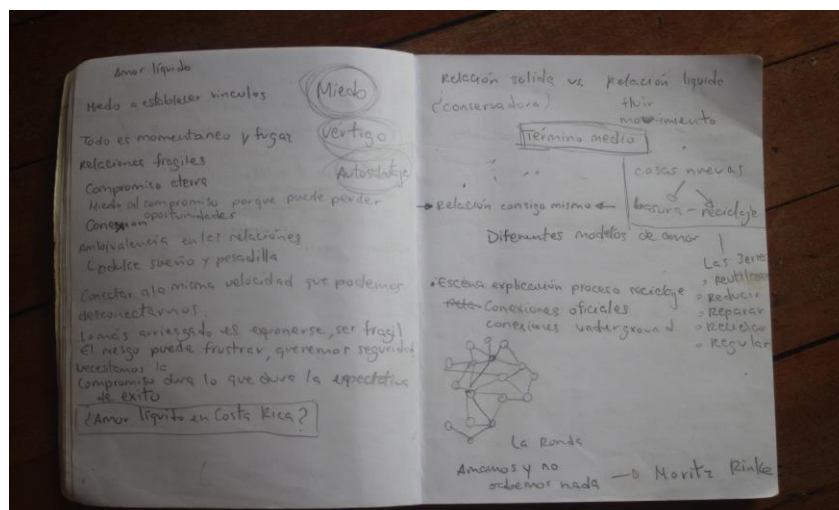 Amor líquido
Miedo a establecer vínculos
Miedo
Todo es momentaneo y fugaz
Vértigo
Relaciones fragiles
Autosabotaje
Compromiso
Miedo al compromiso porque puede perder
oportunidades
Conexion
Ambivalencia en las relaciones
dulce sueño y pesadilla
Conectar a la misma velocidad que podemos
desconectarnos.
Lo más arriesgado es exponerse, ser fragil
El riesgo puede frustrar, queremos seguridad
necesitamos la
Compromiso dura lo que dura la expectativa
de exito
¿Amor líquido en Costa Rica?
Relación solida vs Relación liquida
(conservadora)
fluir
movimiento
Término medio
cosas nuevas
basura - reciclaje
Relación consigo mismo
Diferentes modelos de amar
Las
Reutilizar
Reducir
Reparar
Reciclar
Regular
Escena explicación proceso reciclaje
Conexiones oficiales
conexiones underground
La Ronda
Amamos y no
sabemos nada
Moritz Rinke